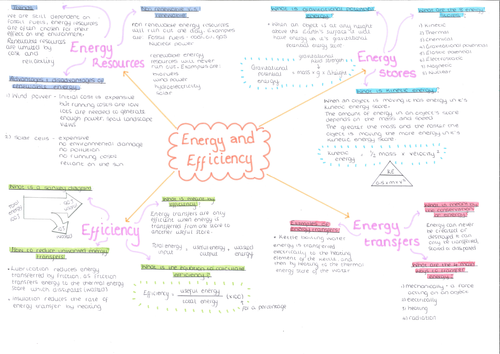 Energy and
Efficiency
Energy
Resources
Trends
We are still dependent on
fossil fuels, energy resources
are often chosen for their
effect on the environment.
Renewable resources
are limited by
cost and
reliability
Non renewable vs renewable
Non renewable energy resources
will run out one day. Examples
are: Fossil fuels - coal, oil, gas
Nuclear power
Renewable energy
resources will never
run out. Examples are:
biofuels
wind power
hydroelectricity
solar
Advantages + disadvantages of
renewable energy
1) Wind power - initial cost is expensive
but running costs are low
lots are needed to generate
enough power, spoil landscape
views
2) Solar cells - expensive
no environmental damage
no pollution
no running costs
reliant on the sun
Energy
Stores
What is gravitational potential
energy?
When an object is at any height
above the Earth's surface it will
have energy in it's gravitational
potential energy store
Gravitational
potential
energy
= mass × g × height
gravitational
field strength
What are the 8 energy
stores?
1) Kinetic
2) Thermal
3) Chemical
4) Gravitational potential
5) Elastic potential
6) Electrostatic
7) Magnetic
8) Nuclear
What is kinetic energy?
When an object is moving is has energy in it's
kinetic energy store.
The amount of energy in an object's store
depends on the mass and speed.
The greater the mass and the faster the
object is moving, the more energy in it's
kinetic energy store.
kinetic
energy
= ½ mass × velocity²
KE
Efficiency
What is a sankey diagram?
What is meant by
efficiency?
Energy transfers are only
efficient when energy is
transferred from one store to
another useful store.
Total energy
input
= useful energy
output
+ wasted
output
What is the equation to calculate
efficiency?
Efficiency =
useful energy
total energy
(×100)
as a percentage
How to reduce unwanted energy
transfers
Lubrication reduces energy
transferred by friction, as friction
transfers energy to the thermal energy
store which dissipates (wasted)
Insulation reduces the rate of
energy transfer by heating
Energy
transfers
Examples of
energy transfers
A kettle boiling water:
energy is transferred
electrically to the heating
element of the kettle, and
then by heating to the thermal
energy store of the water
What is meant by
the conservation
of energy?
Energy can never
be created or
destroyed it can
only be transferred,
stored or dissipated
What are the 4 main
ways to transfer
energy?
1) mechanically - a force
acting on an object
2) electricity
3) heating
4) radiation